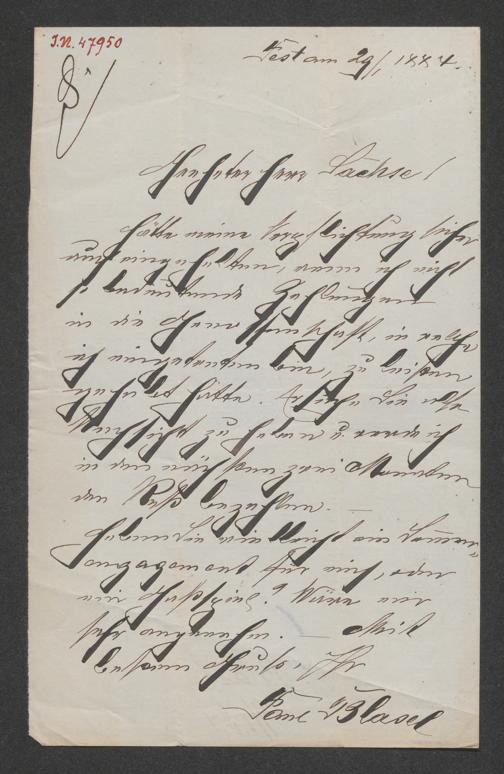 I.N. 47950
Pest am 29/1 1884.
Geehrter Herr Sachse!
Hätte meine Verpflichtung sicher
eingehalten, wenn ich nicht
so bedeutende Zahlungen
in die Genossenschaft, in welche
ich eingetreten bin, zu leisten
gehabt hätte. Ersuche Sie also
Nachsicht zu haben u. werde ich
in den nächsten zwei Monaten
den Rest bezahlen. —
Haben Sie vielleicht ein Sommer-
engagement für mich, oder
ein Gastspiel? Wäre mir
sehr angenehm. — Mit
bestem Gruss, Ihr
Paul Blasel